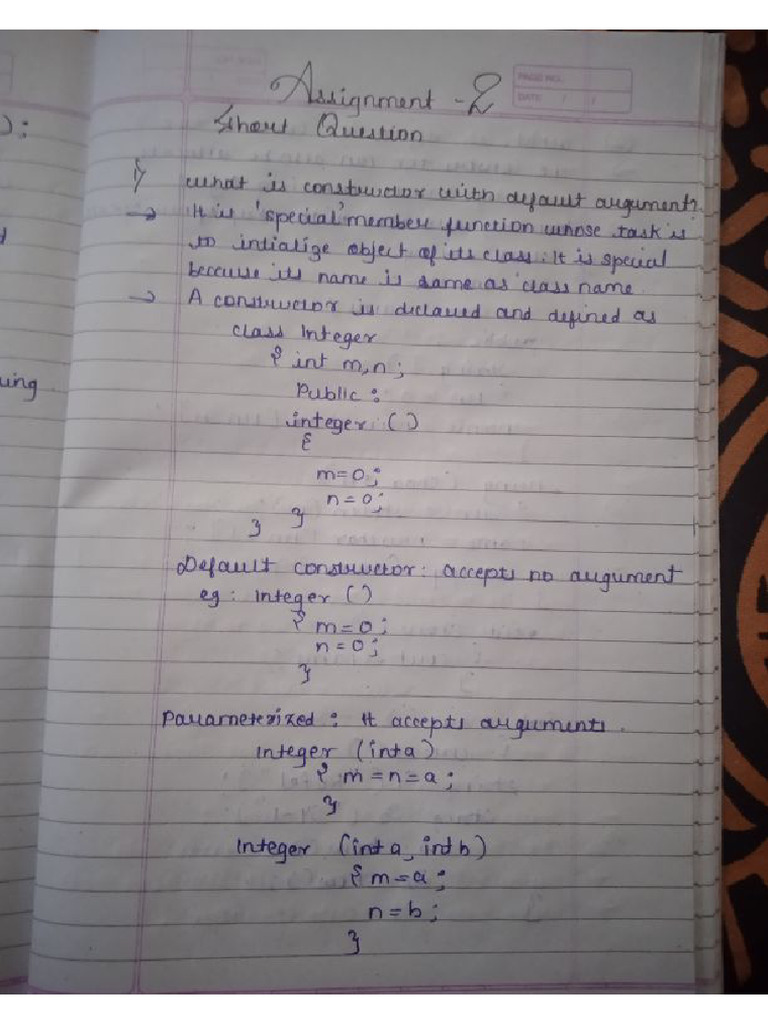 Assignment - 2
PAGE NO.
DATE / /
Short Question
):
1) what is constructor with default argument?
→ It is 'special' member function whose task is
to intialize object of its class. It is special
because its name is same as class name.
→ A constructor is declared and defined as
class Integer
{ int m,n;
ing
Public :
integer ( )
{
m=0;
n=0;
}
}
Default constructor: accepts no argument
eg: Integer ( )
{ m=0;
n=0;
}
Parameterized : It accepts arguments.
Integer (int a)
{ m=n=a;
}
Integer (int a, int b)
{ m=a;
n=b;
}